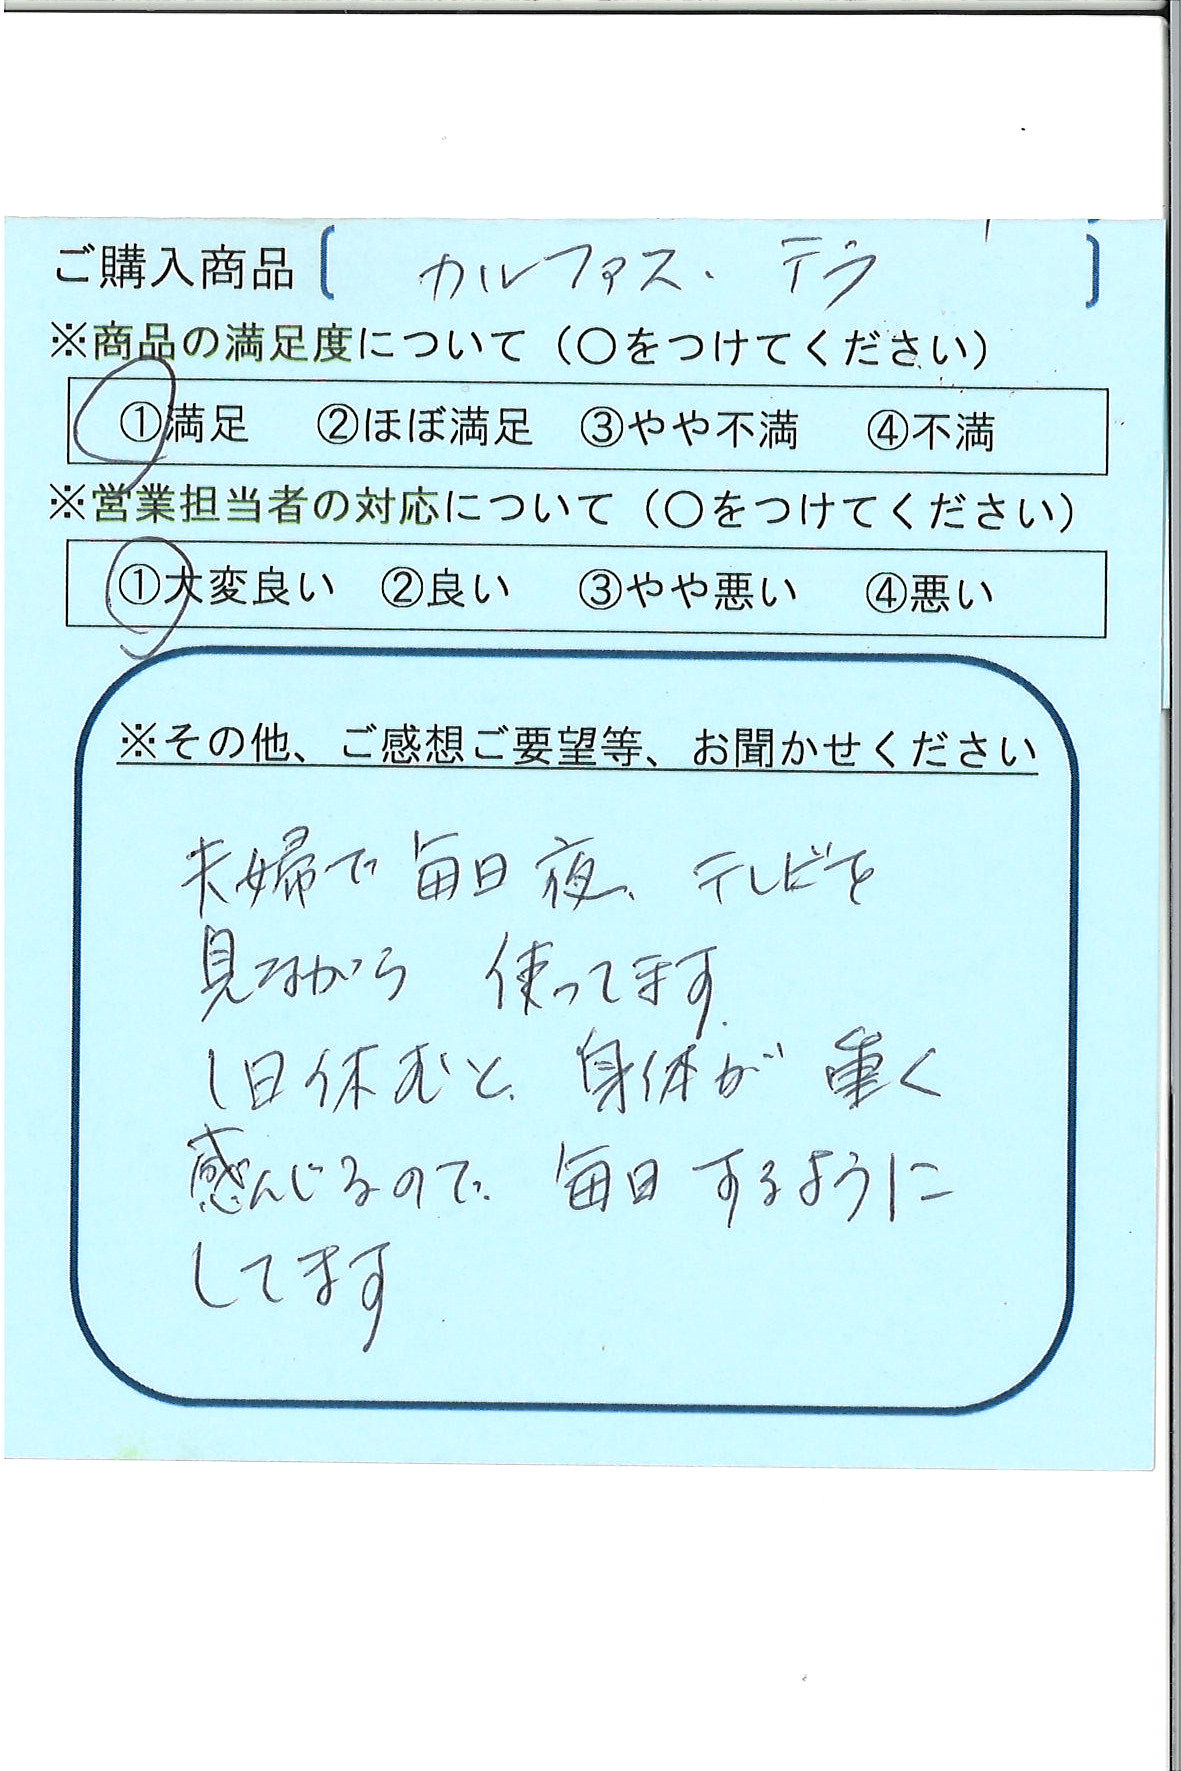 ご購入商品〔カルファス. テラ〕
※商品の満足度について（〇をつけてください）
①満足 ②ほぼ満足 ③やや不満 ④不満
※営業担当者の対応について（〇をつけてください）
①大変良い ②良い ③やや悪い ④悪い
※その他、ご感想ご要望等、お聞かせください
夫婦で毎日夜、テレビを
見ながら 使ってます.
1日休むと、身体が重く
感んじるので、毎日するように
してます